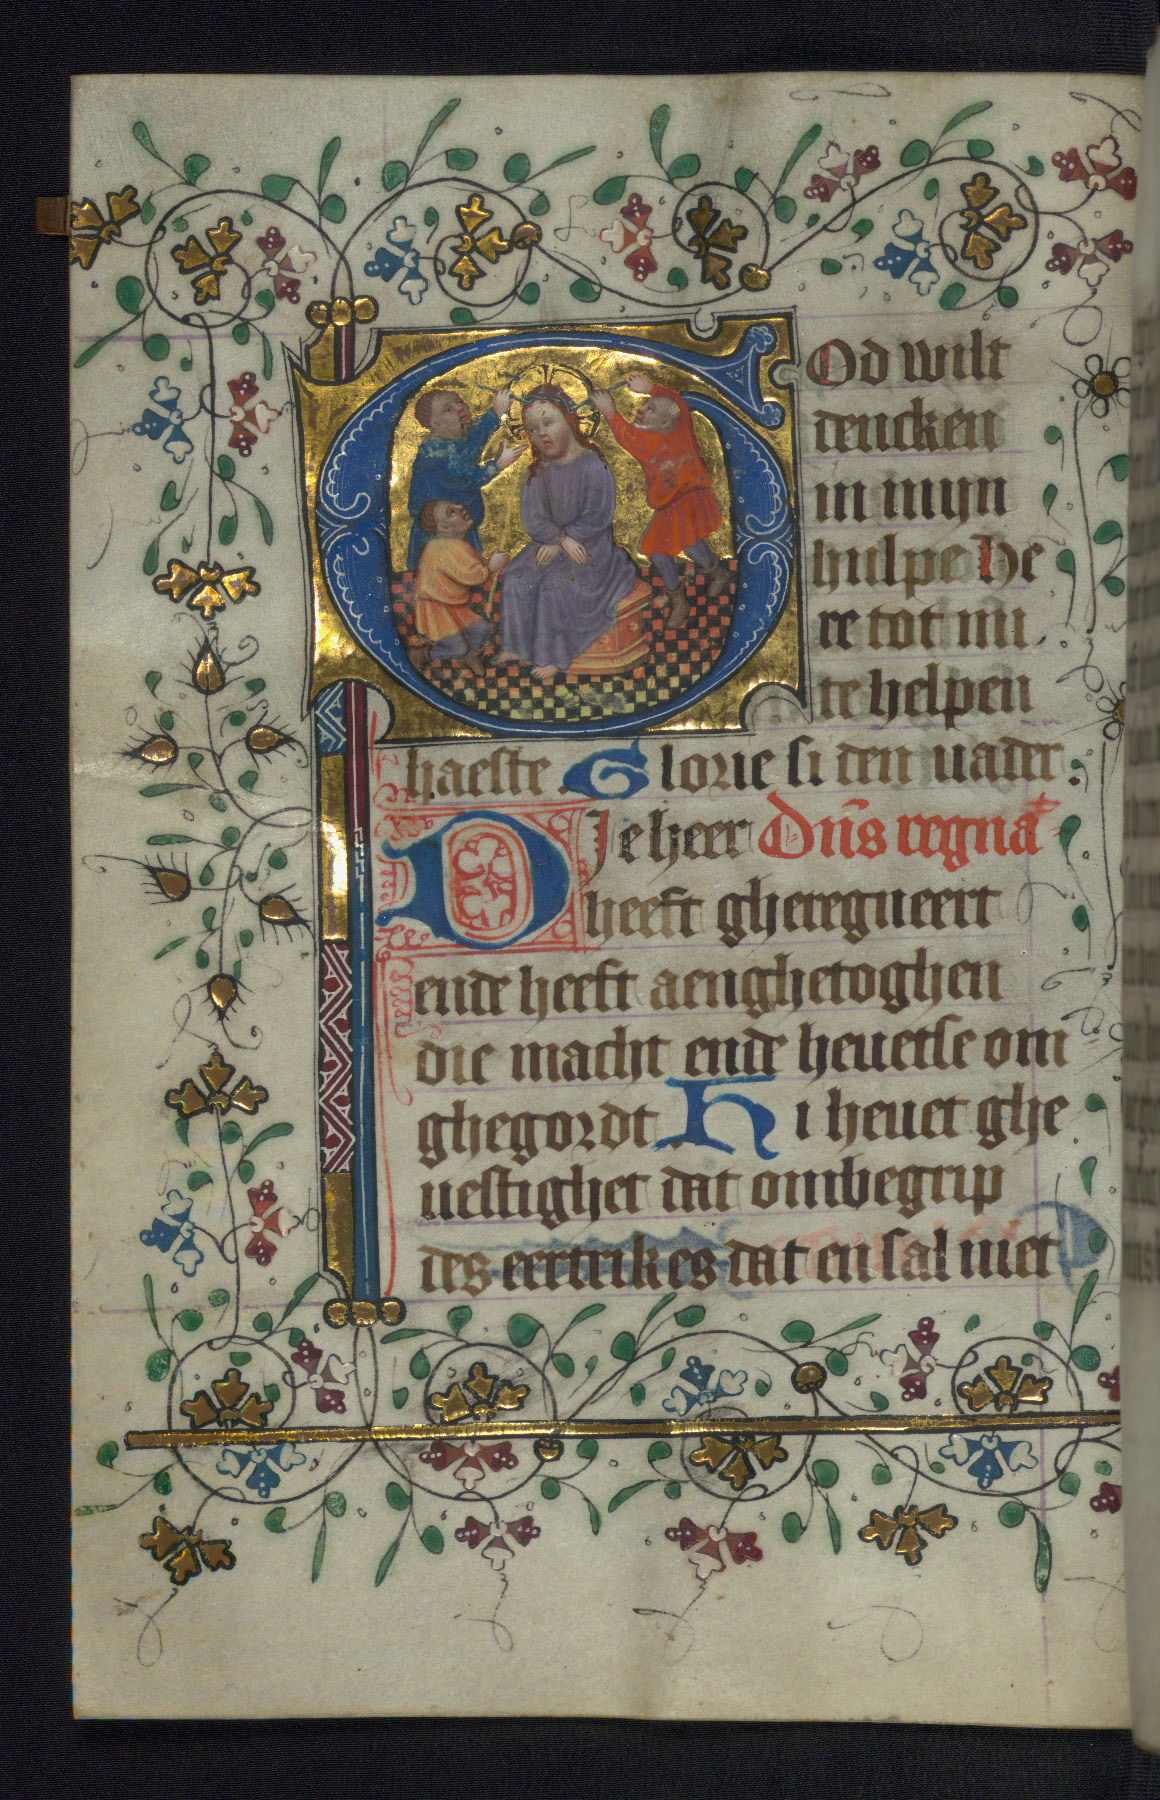 God wilt
dencken
in mijn
hulpe He
re tot mi
te helpen
haeste. Glorie si den uader.
Die heer Dn̄s regna
heeft gheregneert
ende heeft aenghetoghen
die macht ende heuetse om
ghegordt. Hi heuet ghe
uestighet dat ombegrip
des eertrikes dat en sal niet